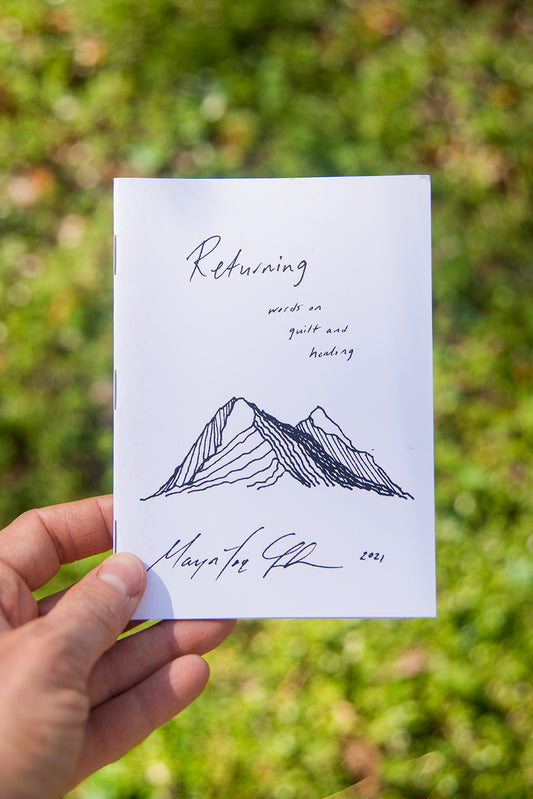 Returning
words on
guilt and
healing
2021